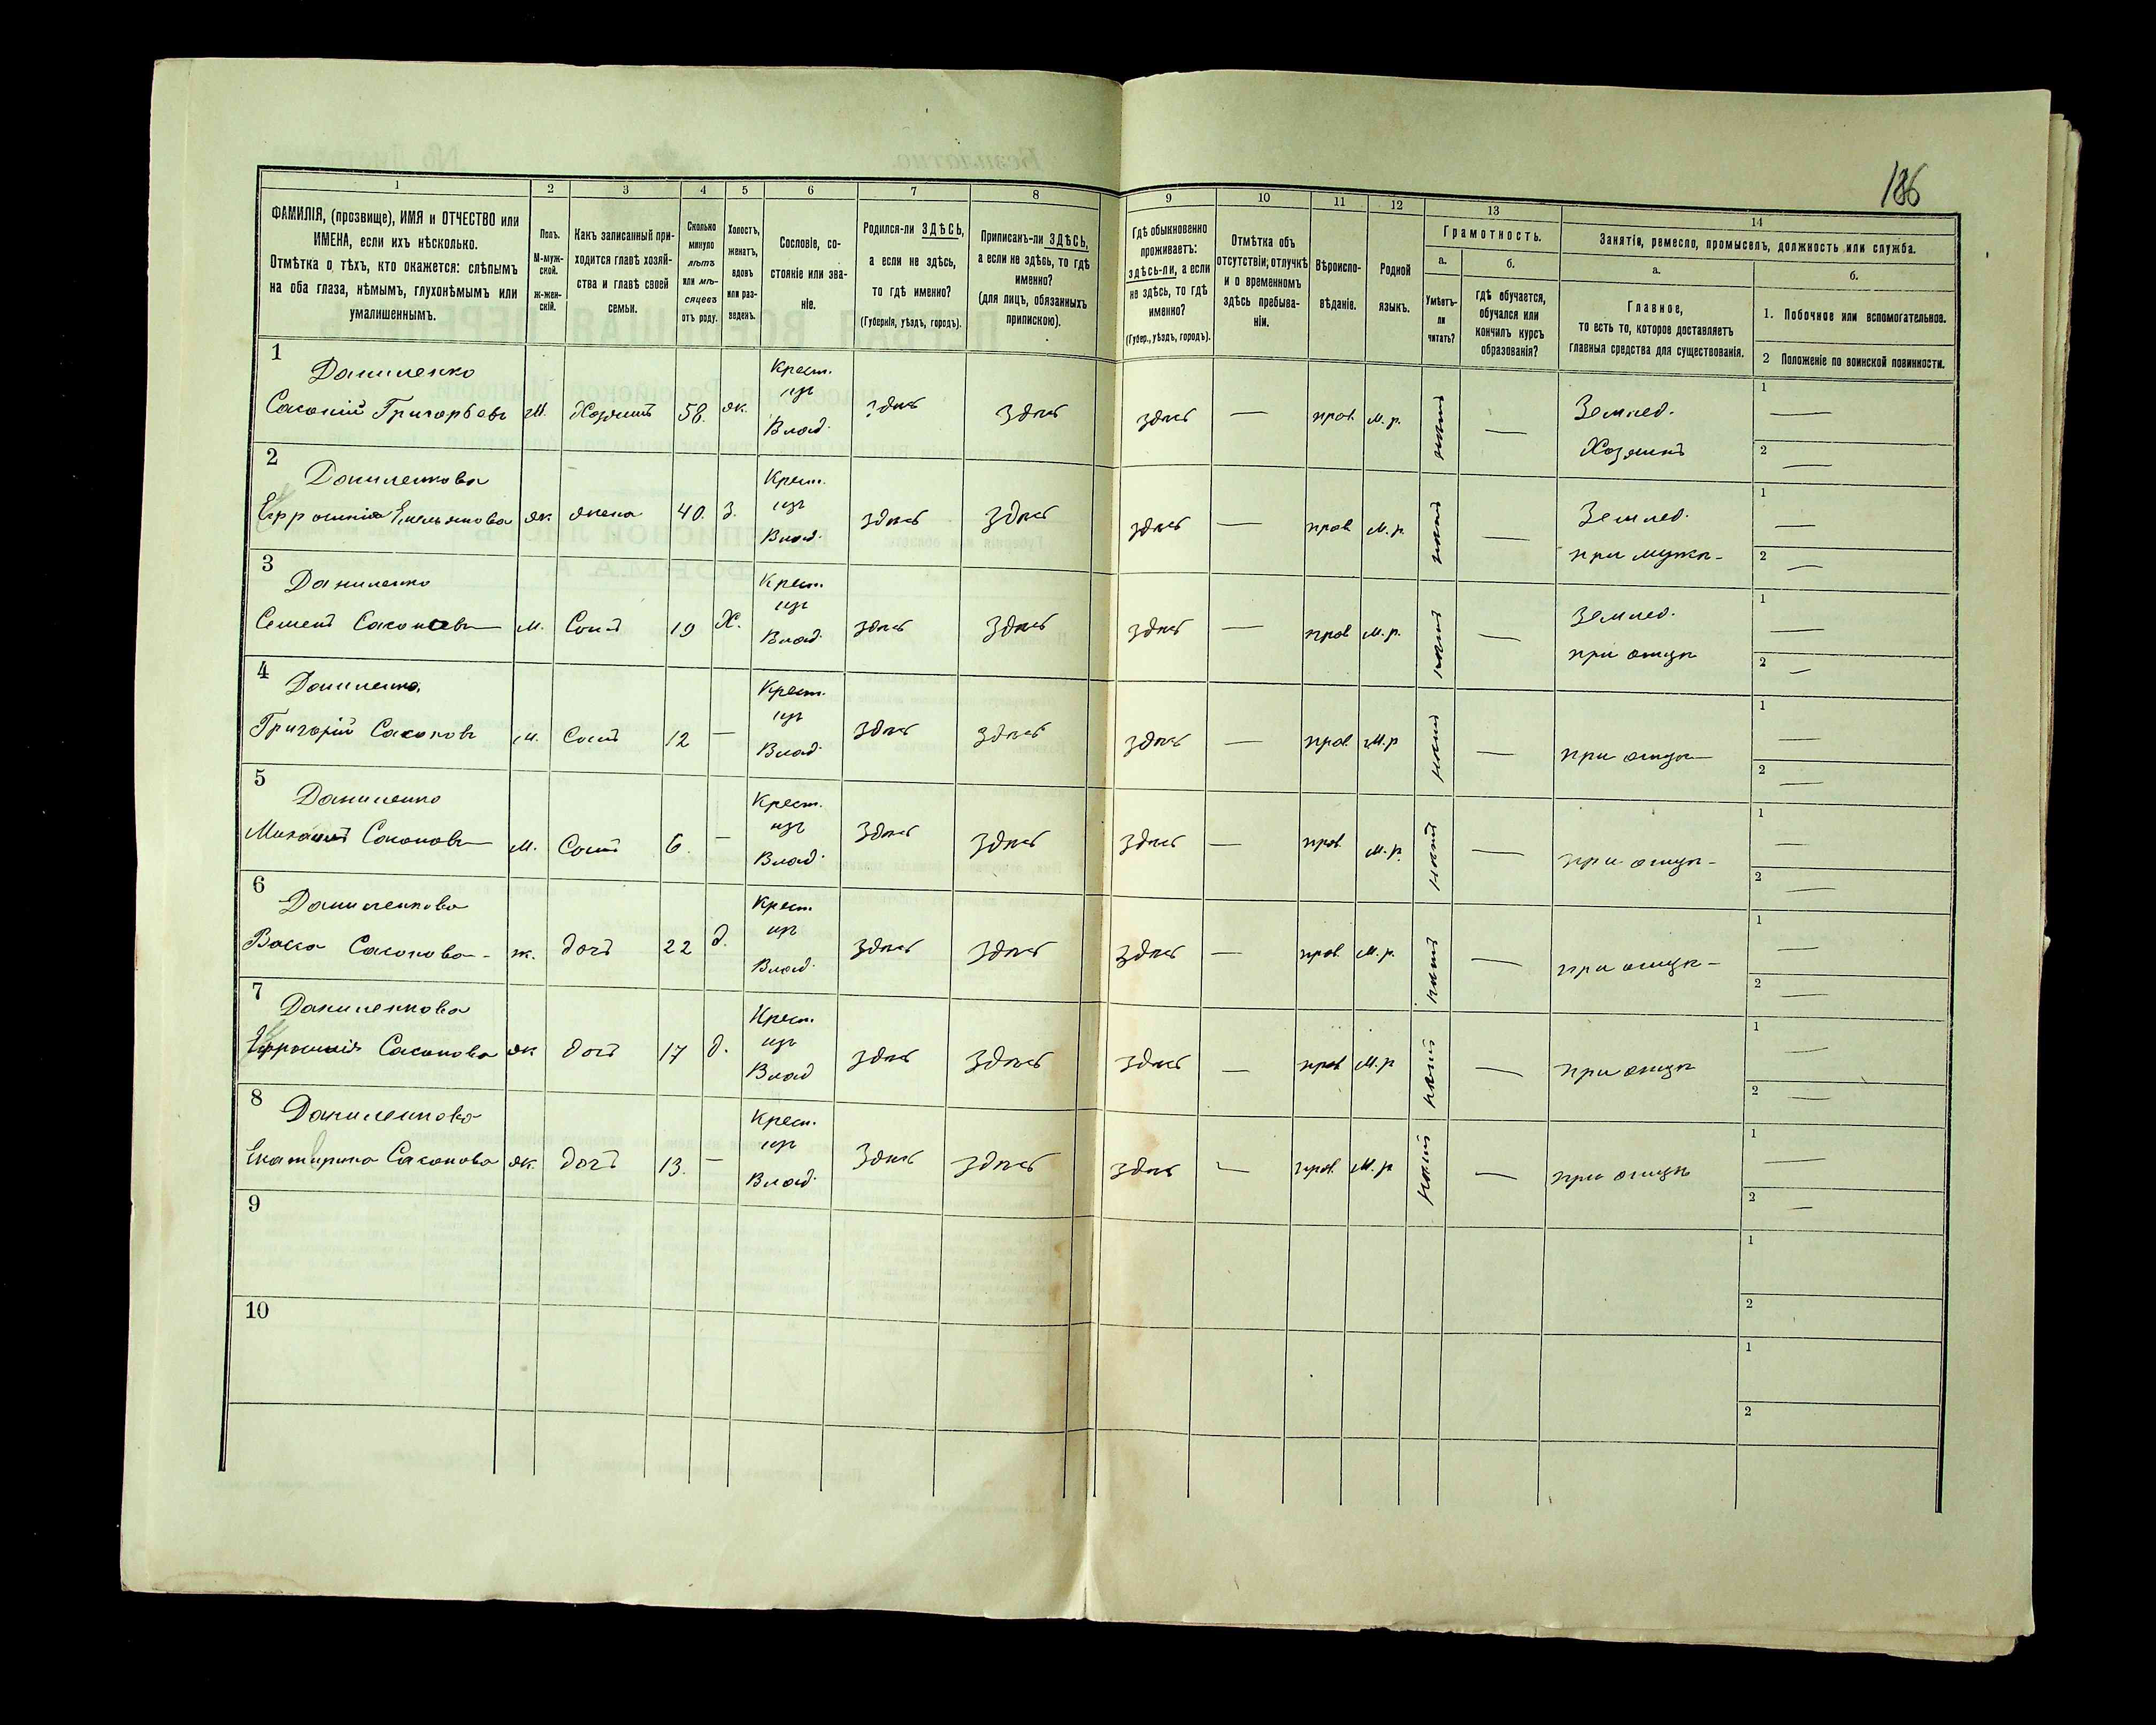 186
1
2
3
4
5
6
7
8
9
10
11
12
13
14
ФАМИЛІЯ, (прозвище), ИМЯ и ОТЧЕСТВО или
ИМЕНА, если ихъ нѣсколько.
Отмѣтка о тѣхъ, кто окажется: слѣпымъ
на оба глаза, нѣмымъ, глухонѣмымъ или
умалишеннымъ.
Полъ.
М-муж-
ской.
ж-жен-
скій.
Какъ записанный при-
ходится главѣ хозяй-
ства и главѣ своей
семьи.
Сколько
минуло
лѣтъ
или мѣ-
сяцевъ
отъ роду.
Холостъ,
женатъ,
вдовъ
или раз-
веденъ.
Сословіе, со-
стояніе или зва-
ніе.
Родился-ли ЗДѢСЬ,
а если не здѣсь,
то гдѣ именно?
(Губернія, уѣздъ, городъ).
Приписанъ-ли ЗДѢСЬ,
а если не здѣсь, то гдѣ
именно?
(для лицъ, обязанныхъ
припискою).
Гдѣ обыкновенно
проживаетъ:
здѣсь-ли, а если
не здѣсь, то гдѣ
именно?
(Губер., уѣздъ, городъ).
Отмѣтка объ
отсутствіи, отлучкѣ
и о временномъ
здѣсь пребыва-
ніи.
Вѣроиспо-
вѣданіе.
Родной
языкъ.
Грамотность.
а.
Умѣетъ-
ли
читать?
б.
гдѣ обучается,
обучался или
кончилъ курсъ
образованія?
Занятія, ремесло, промыселъ, должность или служба.
а.
Главное,
то есть то, которое доставляетъ
главныя средства для существованія.
б.
1. Побочное или вспомогательное.
2 Положеніе по воинской повинности.
1
Даниленко
Сасоній Григорьевъ м. Хозяинъ 58. ж. Крест. изъ Влад. здѣсь здѣсь здѣсь — прав. м.р. нѣтъ — Землед. Хозяинъ 1 — 2 —
2
Даниленкова
Ефросинія Емельянова ж. жена 40. з. Крест. изъ Влад. здѣсь здѣсь здѣсь — прав. м.р. нѣтъ — Землед. при мужѣ 1 — 2 —
3
Даниленко
Семенъ Сасоновъ м. Сынъ 19 Х. Крест. изъ Влад. здѣсь здѣсь здѣсь — прав м.р. нѣтъ — Землед. при отцѣ 1 — 2 —
4
Даниленко
Григорій Сасоновъ м. Сынъ 12 — Крест. изъ Влад. здѣсь здѣсь здѣсь — прав. м.р нѣтъ — при отцѣ 1 — 2 —
5
Даниленко
Михаилъ Сасоновъ м. Сынъ 6. — Крест. изъ Влад. здѣсь здѣсь здѣсь — прав. м.р. нѣтъ — при отцѣ 1 — 2 —
6
Даниленкова
Васса Сасонова ж. дочь 22 д. Крест. изъ Влад. здѣсь здѣсь здѣсь — прав. м.р. нѣтъ — при отцѣ 1 — 2 —
7
Даниленкова
Ефросинія Сасонова ж дочь 17 д. Крест. изъ Влад здѣсь здѣсь здѣсь — прав м.р нѣтъ — при отцѣ 1 — 2 —
8
Даниленкова
Екатирина Сасонова ж. дочь 13. — Крест. изъ Влад. здѣсь здѣсь здѣсь — прав. м.р нѣтъ — при отцѣ 1 — 2 —
9
1
2
10
1
2